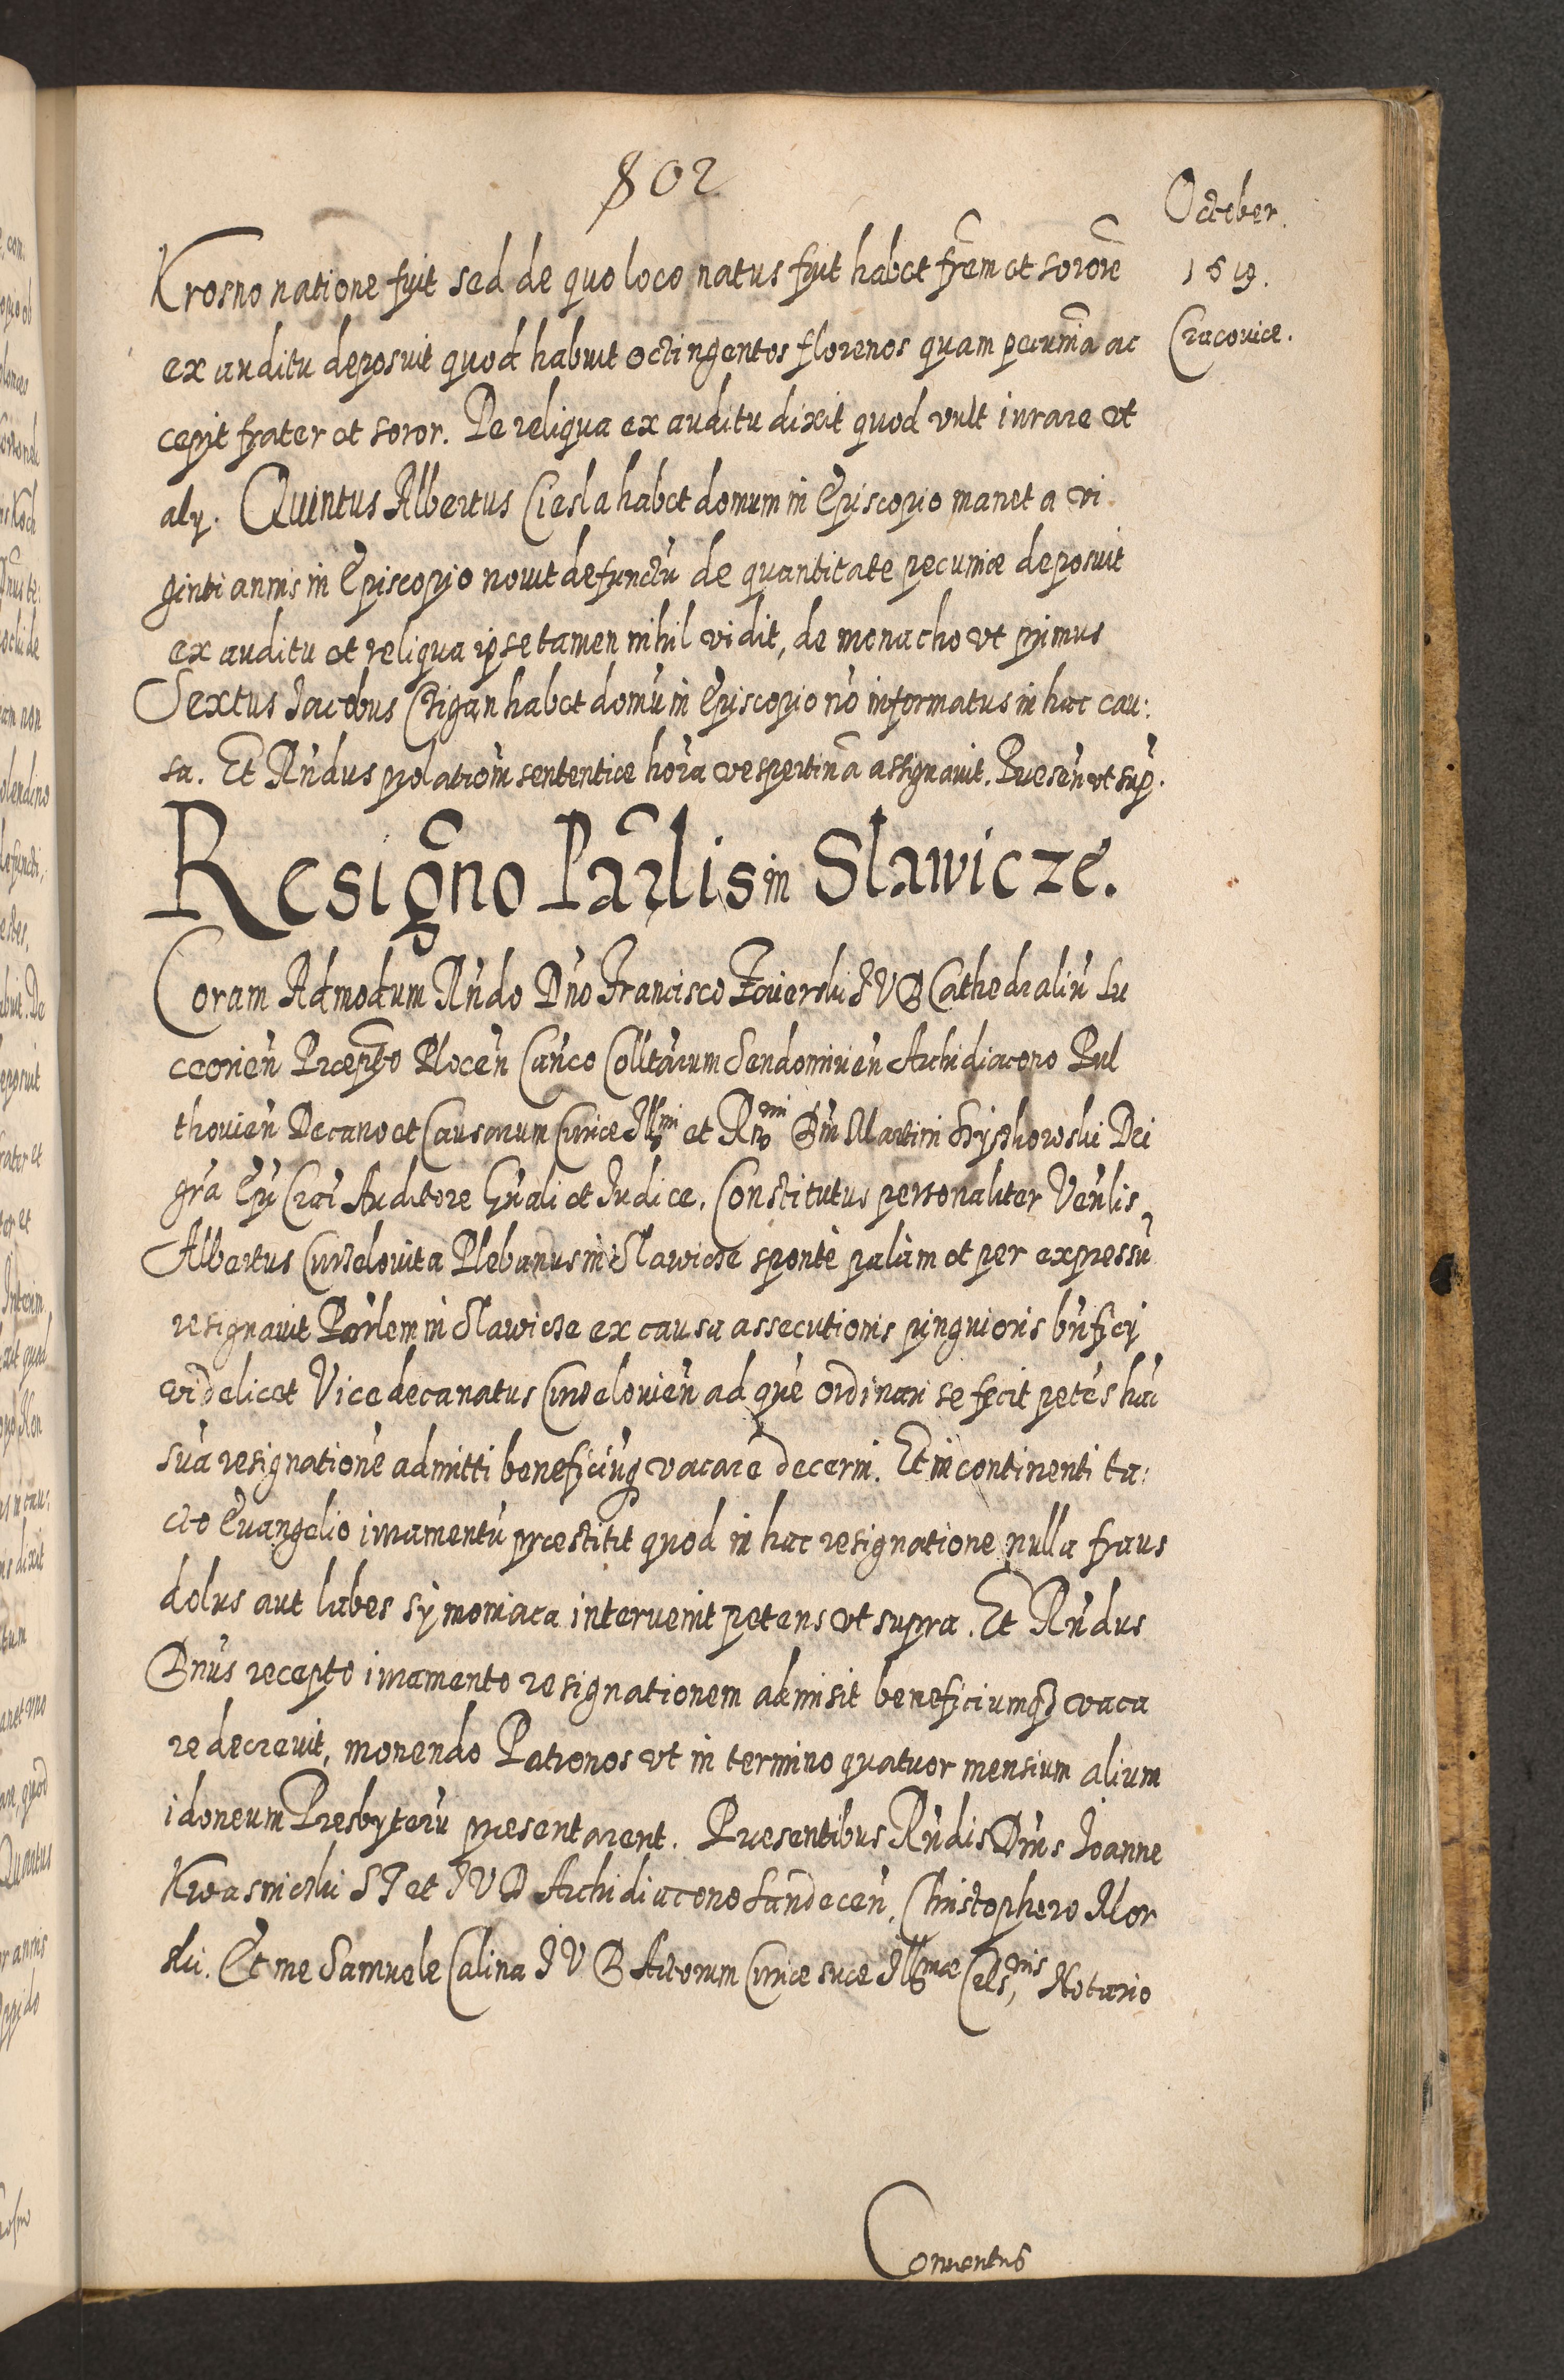 802
October.
1619.
Cracoviæ.
Krosno natione fuit sed de quo loco natus fuit habet frēm et sororē
ex auditu deposuit quod habuit octingentos florenos quam pecuniā ac
cepit frater et soror. De reliqua ex auditu dixit quod vult iurare vt
alÿ. Quintus Albertus Ciesla habet domum in Episcopio manet a vi
ginti annis in Episcopio nouit defunctū de quantitate pecuniæ deposuit
ex auditu et reliqua ipse tamen nihil vidit, de monacho vt primus
Sextus Iacobus Czigan habet domū in Episcopio nō informatus in hac cau:
sa. Et Rn̄dus prolationi sententiæ horā vespertinā assignauit. Præsen̄ vt sup̄.
Resigno Par̄lis in Slawicze.
Coram Admodum Rn̄do Dn̄o Francisco Zaierski I V D Cathedraliū Lu
ceorien̄ Præpt̄o Plocen̄ Can̄co Collt̄arum Sendomirien̄ Archidiacono Pul
thouien̄ Decano et Causarum Curiæ Illmi et Rnd̄mi Dn̄i Martini Szyszkowski Dei
gr̄a Ep̄i Crac̄ Auditore Gn̄ali et Iudice. Constitutus personaliter Ven̄lis
Albertus Curzelouita Plebanus in Slawicze sponte palam et per expressū
resignauit Par̄lem in Slawicze ex causa assecutionis pinguioris bn̄ficÿ
videlicet Vicedecanatus Curzelouien̄ ad quē ordinari se fecit petēs hāc
suā resignationē admitti beneficiūq vacare decerni. Et incontinenti ta:
cto Euangelio iuramentū præstitit quod in hac resignatione nulla fraus
dolus aut labes sÿmoniaca interuenit petens vt supra. Et Rn̄dus
Dn̄us recepto iuramento resignationem admisit beneficiumq3 vaca
re decreuit, monendo Patronos vt in termino quatuor mensium alium
idoneum Presbyterū præsentarent. Præsentibus Rn̄dis Dn̄is Ioanne
Krasnicki S T et I V D Archidiacono Sandecen̄, Christophero Mor
ski. Et me Samuele Calina I V D Actorum Curiæ suæ Illmæ Cels,nis Notario
Conuentus